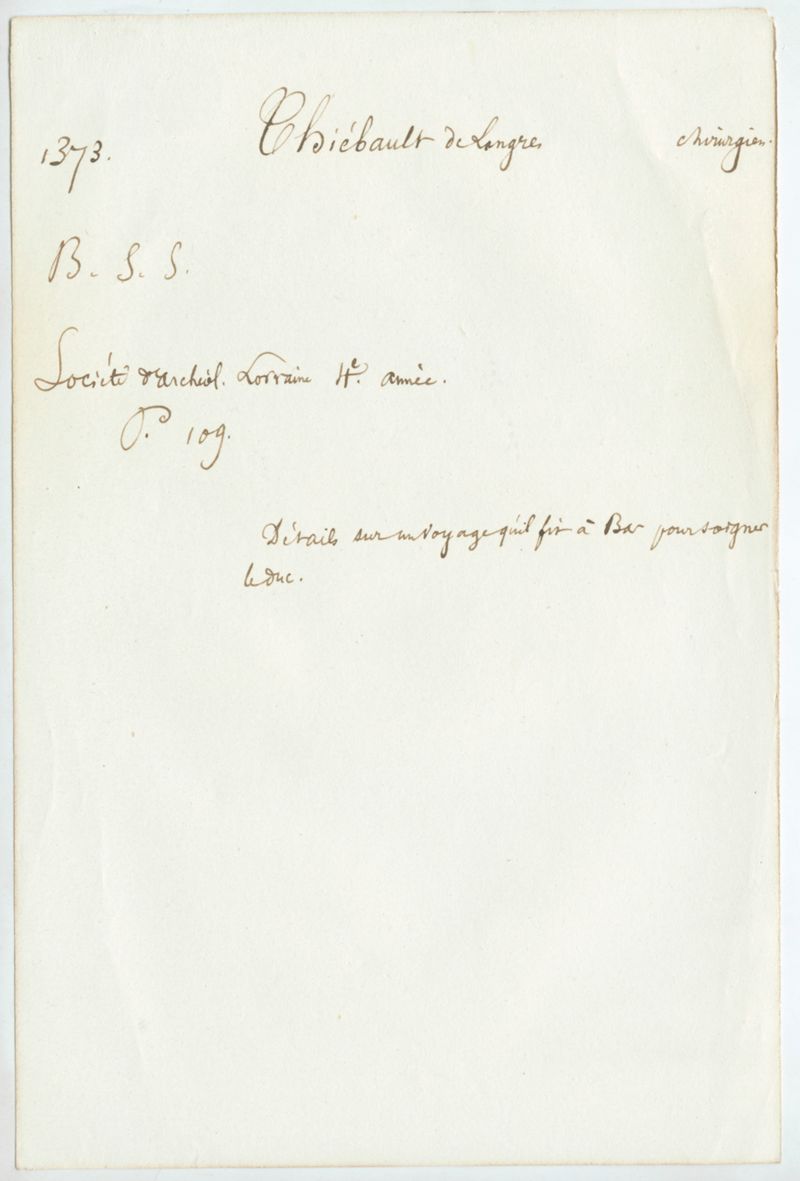 1373. Thiébault de Langres chirurgien.
B. S. S.
Société d'archéol. Lorraine 4e. année.
P. 109.
Détails sur un voyage qu'il fit à Bar pour soigner
le duc.